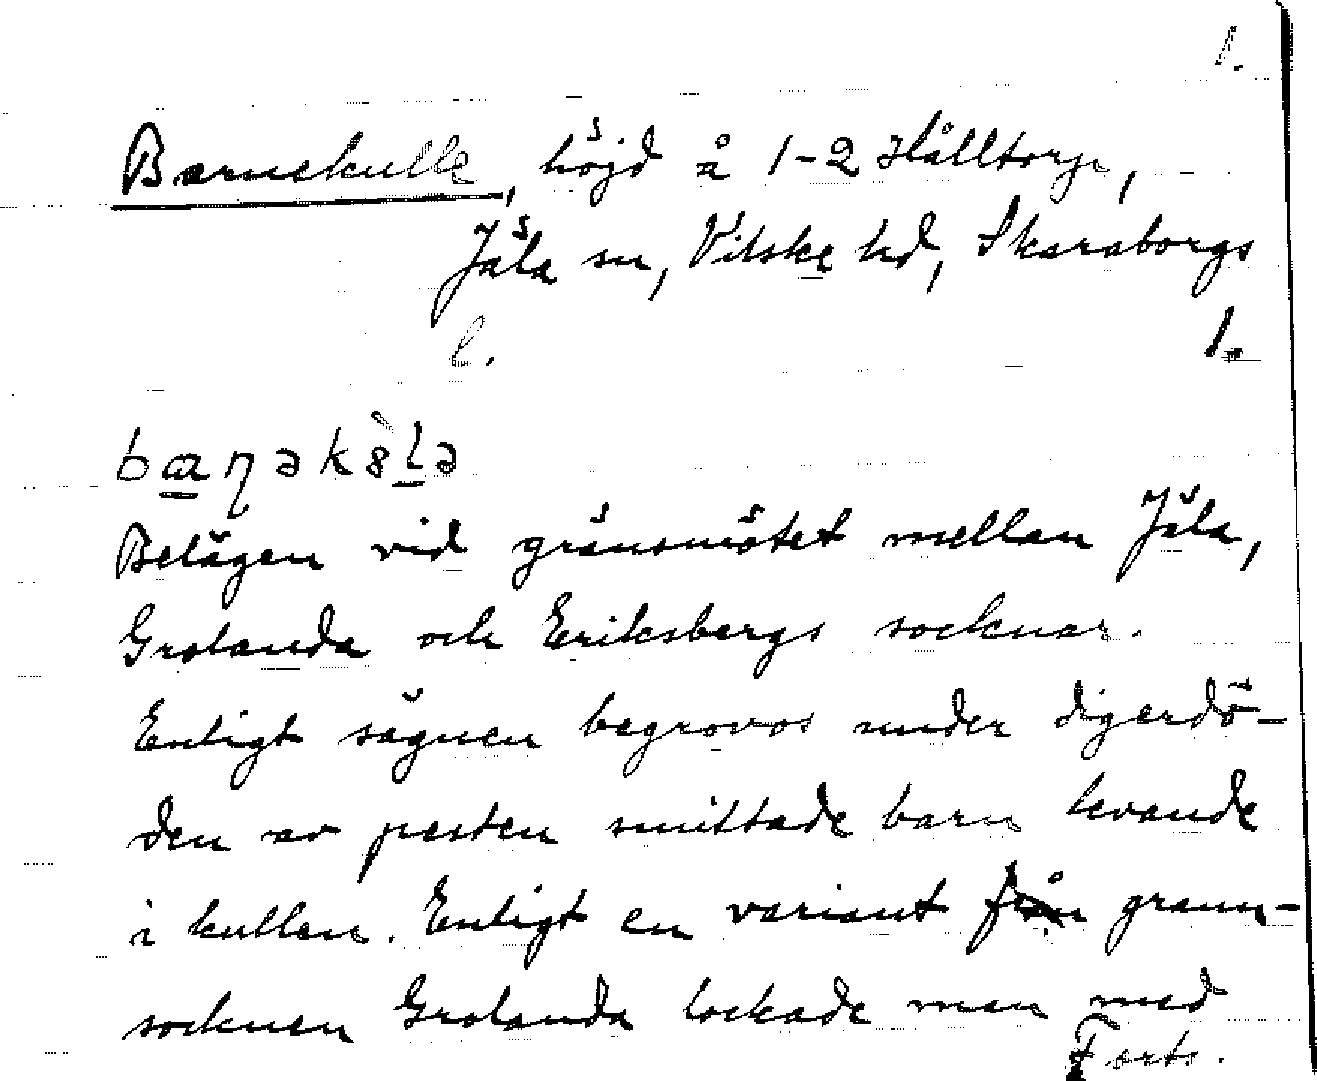 1.
Barnekulle, höjd å 1-2 Hålltorp,
Jäla sn, Vilske hd, Skaraborgs
l. 1.
Belägen vid gränsmötet mellan Jäla,
Grolanda och Eriksbergs socknar.
Enligt sägnen begrovos under digerdö-
den av pesten smittade barn levande
i kullen. Enligt en variant från grann-
socknen Grolanda lockade man med
Forts.